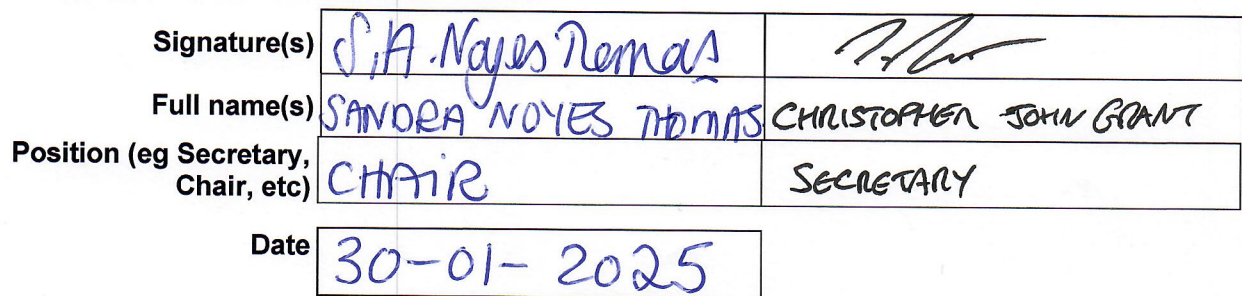 Signature(s) S.A. Noyes Thomas
Full name(s) SANDRA NOYES THOMAS CHRISTOPHER JOHN GRANT
Position (eg Secretary,
Chair, etc) CHAIR SECRETARY
Date 30-01-2025